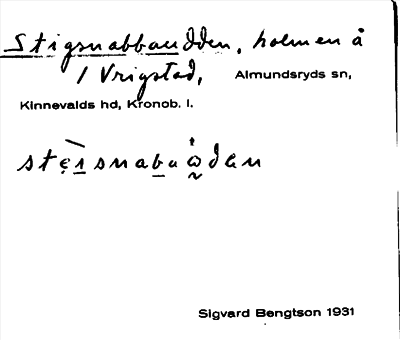 Stigsnabbaudden, holmen å
/ Vrigstad, Almundsryds sn,
Kinnevalds hd, Kronob. l.
Sigvard Bengtson 1931